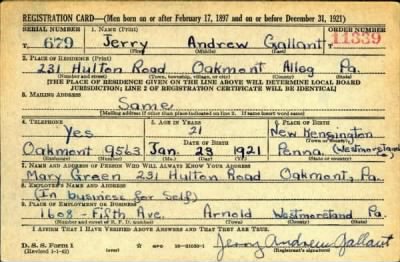 REGISTRATION CARD—(Men born on or after February 17, 1897 and on or before December 31, 1921)
SERIAL NUMBER 1. NAME (Print) ORDER NUMBER
T 679 Jerry Andrew Gallant 11339
(First) (Middle) (Last)
2. PLACE OF RESIDENCE (Print)
231 Hulton Road Oakmont Alleg Pa.
(Number and street) (Town, township, village, or city) (County) (State)
[THE PLACE OF RESIDENCE GIVEN ON THE LINE ABOVE WILL DETERMINE LOCAL BOARD
JURISDICTION; LINE 2 OF REGISTRATION CERTIFICATE WILL BE IDENTICAL]
3. MAILING ADDRESS
Same
(Mailing address if other than place indicated on line 2. If same insert word same)
4. TELEPHONE 5. AGE IN YEARS 6. PLACE OF BIRTH
Yes 21 New Kensington
DATE OF BIRTH
Oakmont 9563 Jan. 23 1921 Penna (Westmoreland)
(Exchange) (Number) (Mo.) (Day) (Yr.) (State or country)
7. NAME AND ADDRESS OF PERSON WHO WILL ALWAYS KNOW YOUR ADDRESS
Mary Green 231 Hulton Road Oakmont, Pa.
8. EMPLOYER'S NAME AND ADDRESS
(In business for Self)
9. PLACE OF EMPLOYMENT OR BUSINESS
1608 - Fifth Ave. Arnold Westmoreland Pa.
(Number and street or R. F. D. number) (Town) (County) (State)
I AFFIRM THAT I HAVE VERIFIED ABOVE ANSWERS AND THAT THEY ARE TRUE.
D. S. S. Form 1
(Revised 1-1-42) (over) Jerry Andrew Gallant
(Registrant's signature)